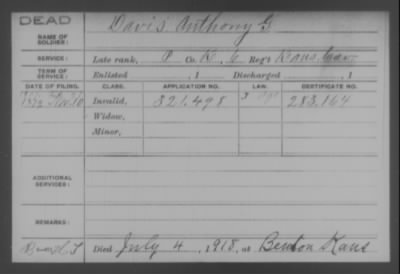 DEAD
NAME OF SOLDIER: Davis Anthony G
SERVICE: Late rank, P Co. K, 6 Reg't Kans. Cav.
TERM OF SERVICE: Enlisted , 1 Discharged , 1
DATE OF FILING. CLASS. APPLICATION NO. LAW. CERTIFICATE NO.
Invalid, 321,498 283,164
Widow,
Minor,
ADDITIONAL SERVICES:
REMARKS:
Died July 4, 1918, at Benton Kans